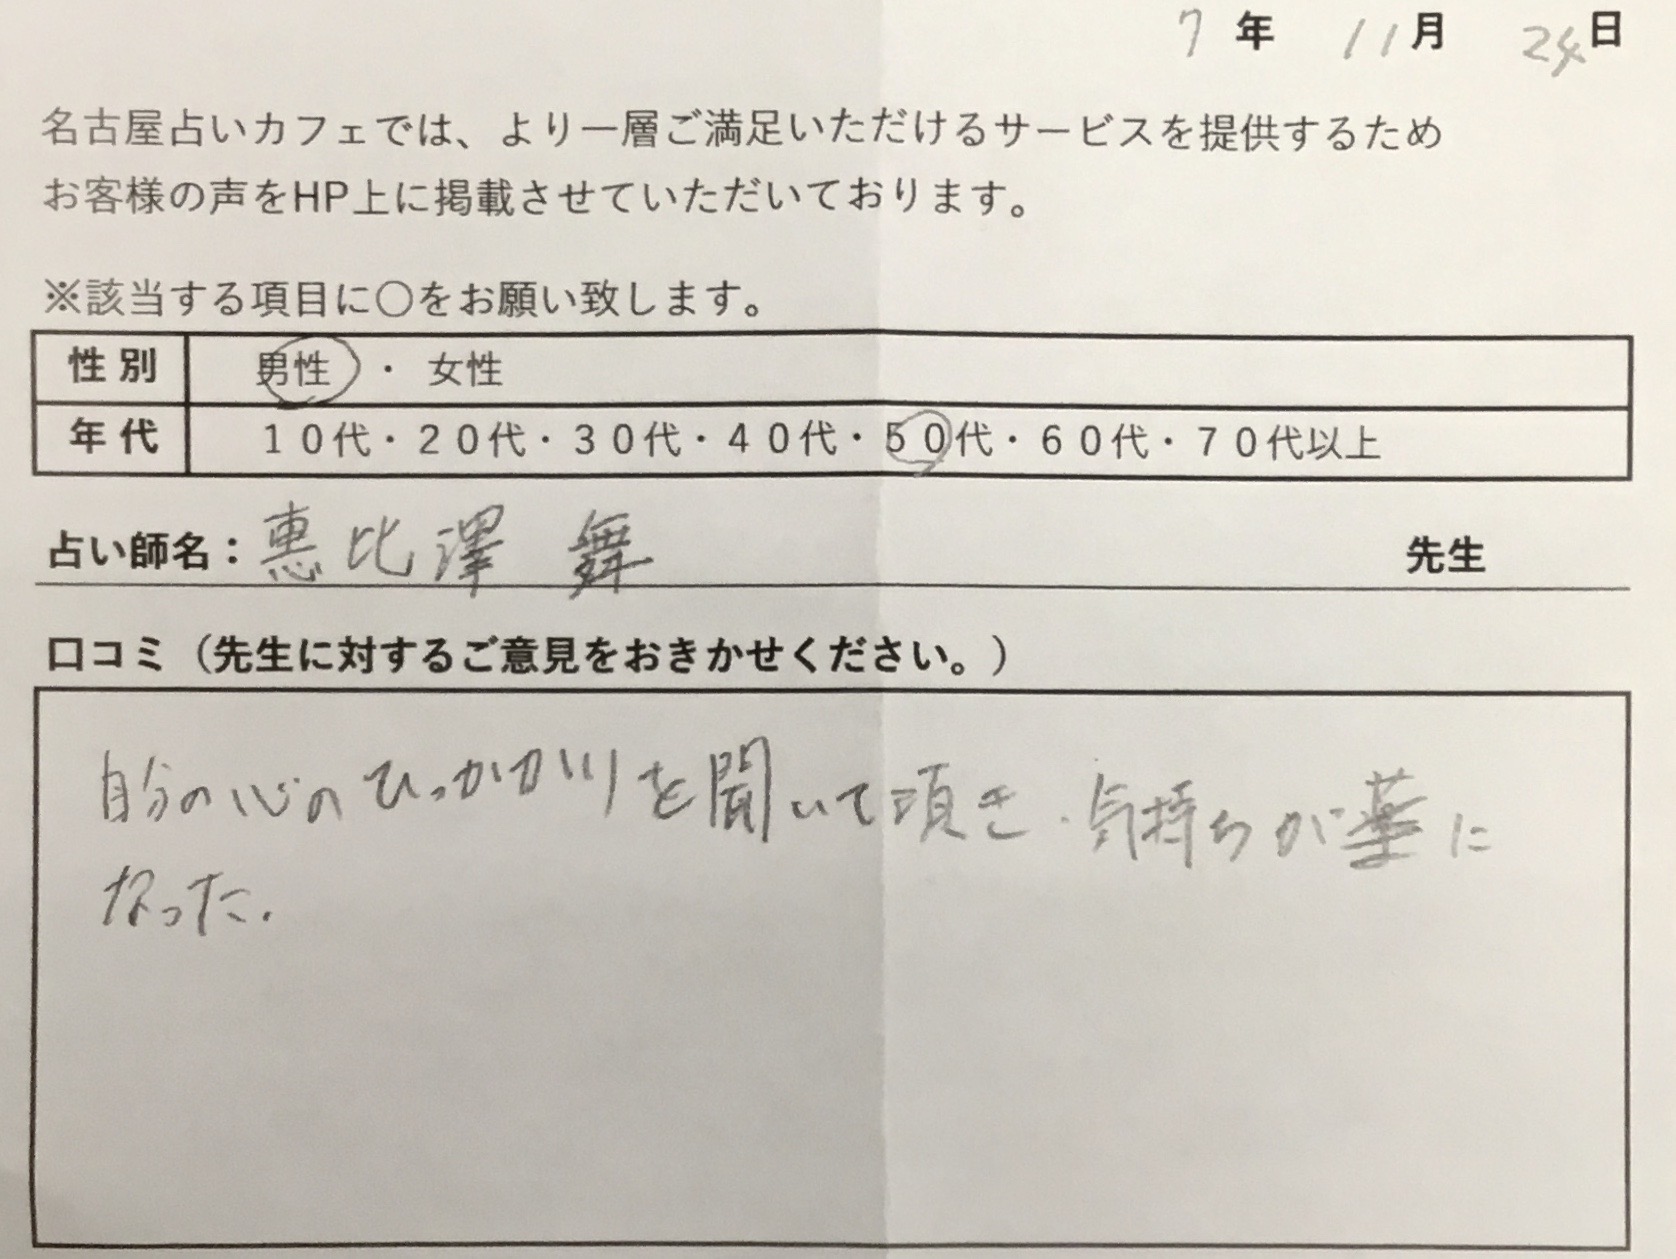 7年 11月 24日
名古屋占いカフェでは、より一層ご満足いただけるサービスを提供するため
お客様の声をHP上に掲載させていただいております。
※該当する項目に〇をお願い致します。
性別 男性 ・ 女性
年代 10代・20代・30代・40代・50代・60代・70代以上
占い師名：恵比澤 舞 先生
口コミ（先生に対するご意見をおきかせください。）
自分の心のひっかかりを聞いて頂き、気持ちが薬に
なった.